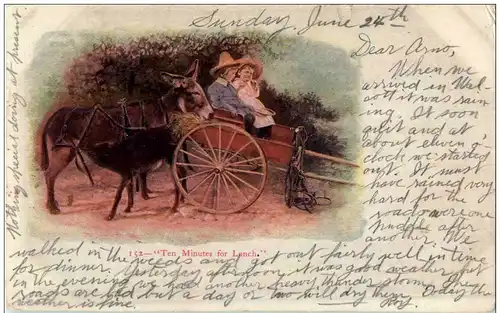 Sunday June 24th
Dear Arno,
When we
arrived in Wal-
it was rain-
ing. It soon
quit and at
about elven o'
clock we started
out. It must
have rained very
hard for the
roads were one
puddle after
another. We
walked in the weeds and got out fairly well in time
for dinner. Yesterday afternoon, it was good weather but
in the evening we had another heavy thunder storm. The
roads are bad but a day or two will dry them. Today the
weather is fine. Roy.
Nothing special doing at present
152—"Ten Minutes for Lunch."